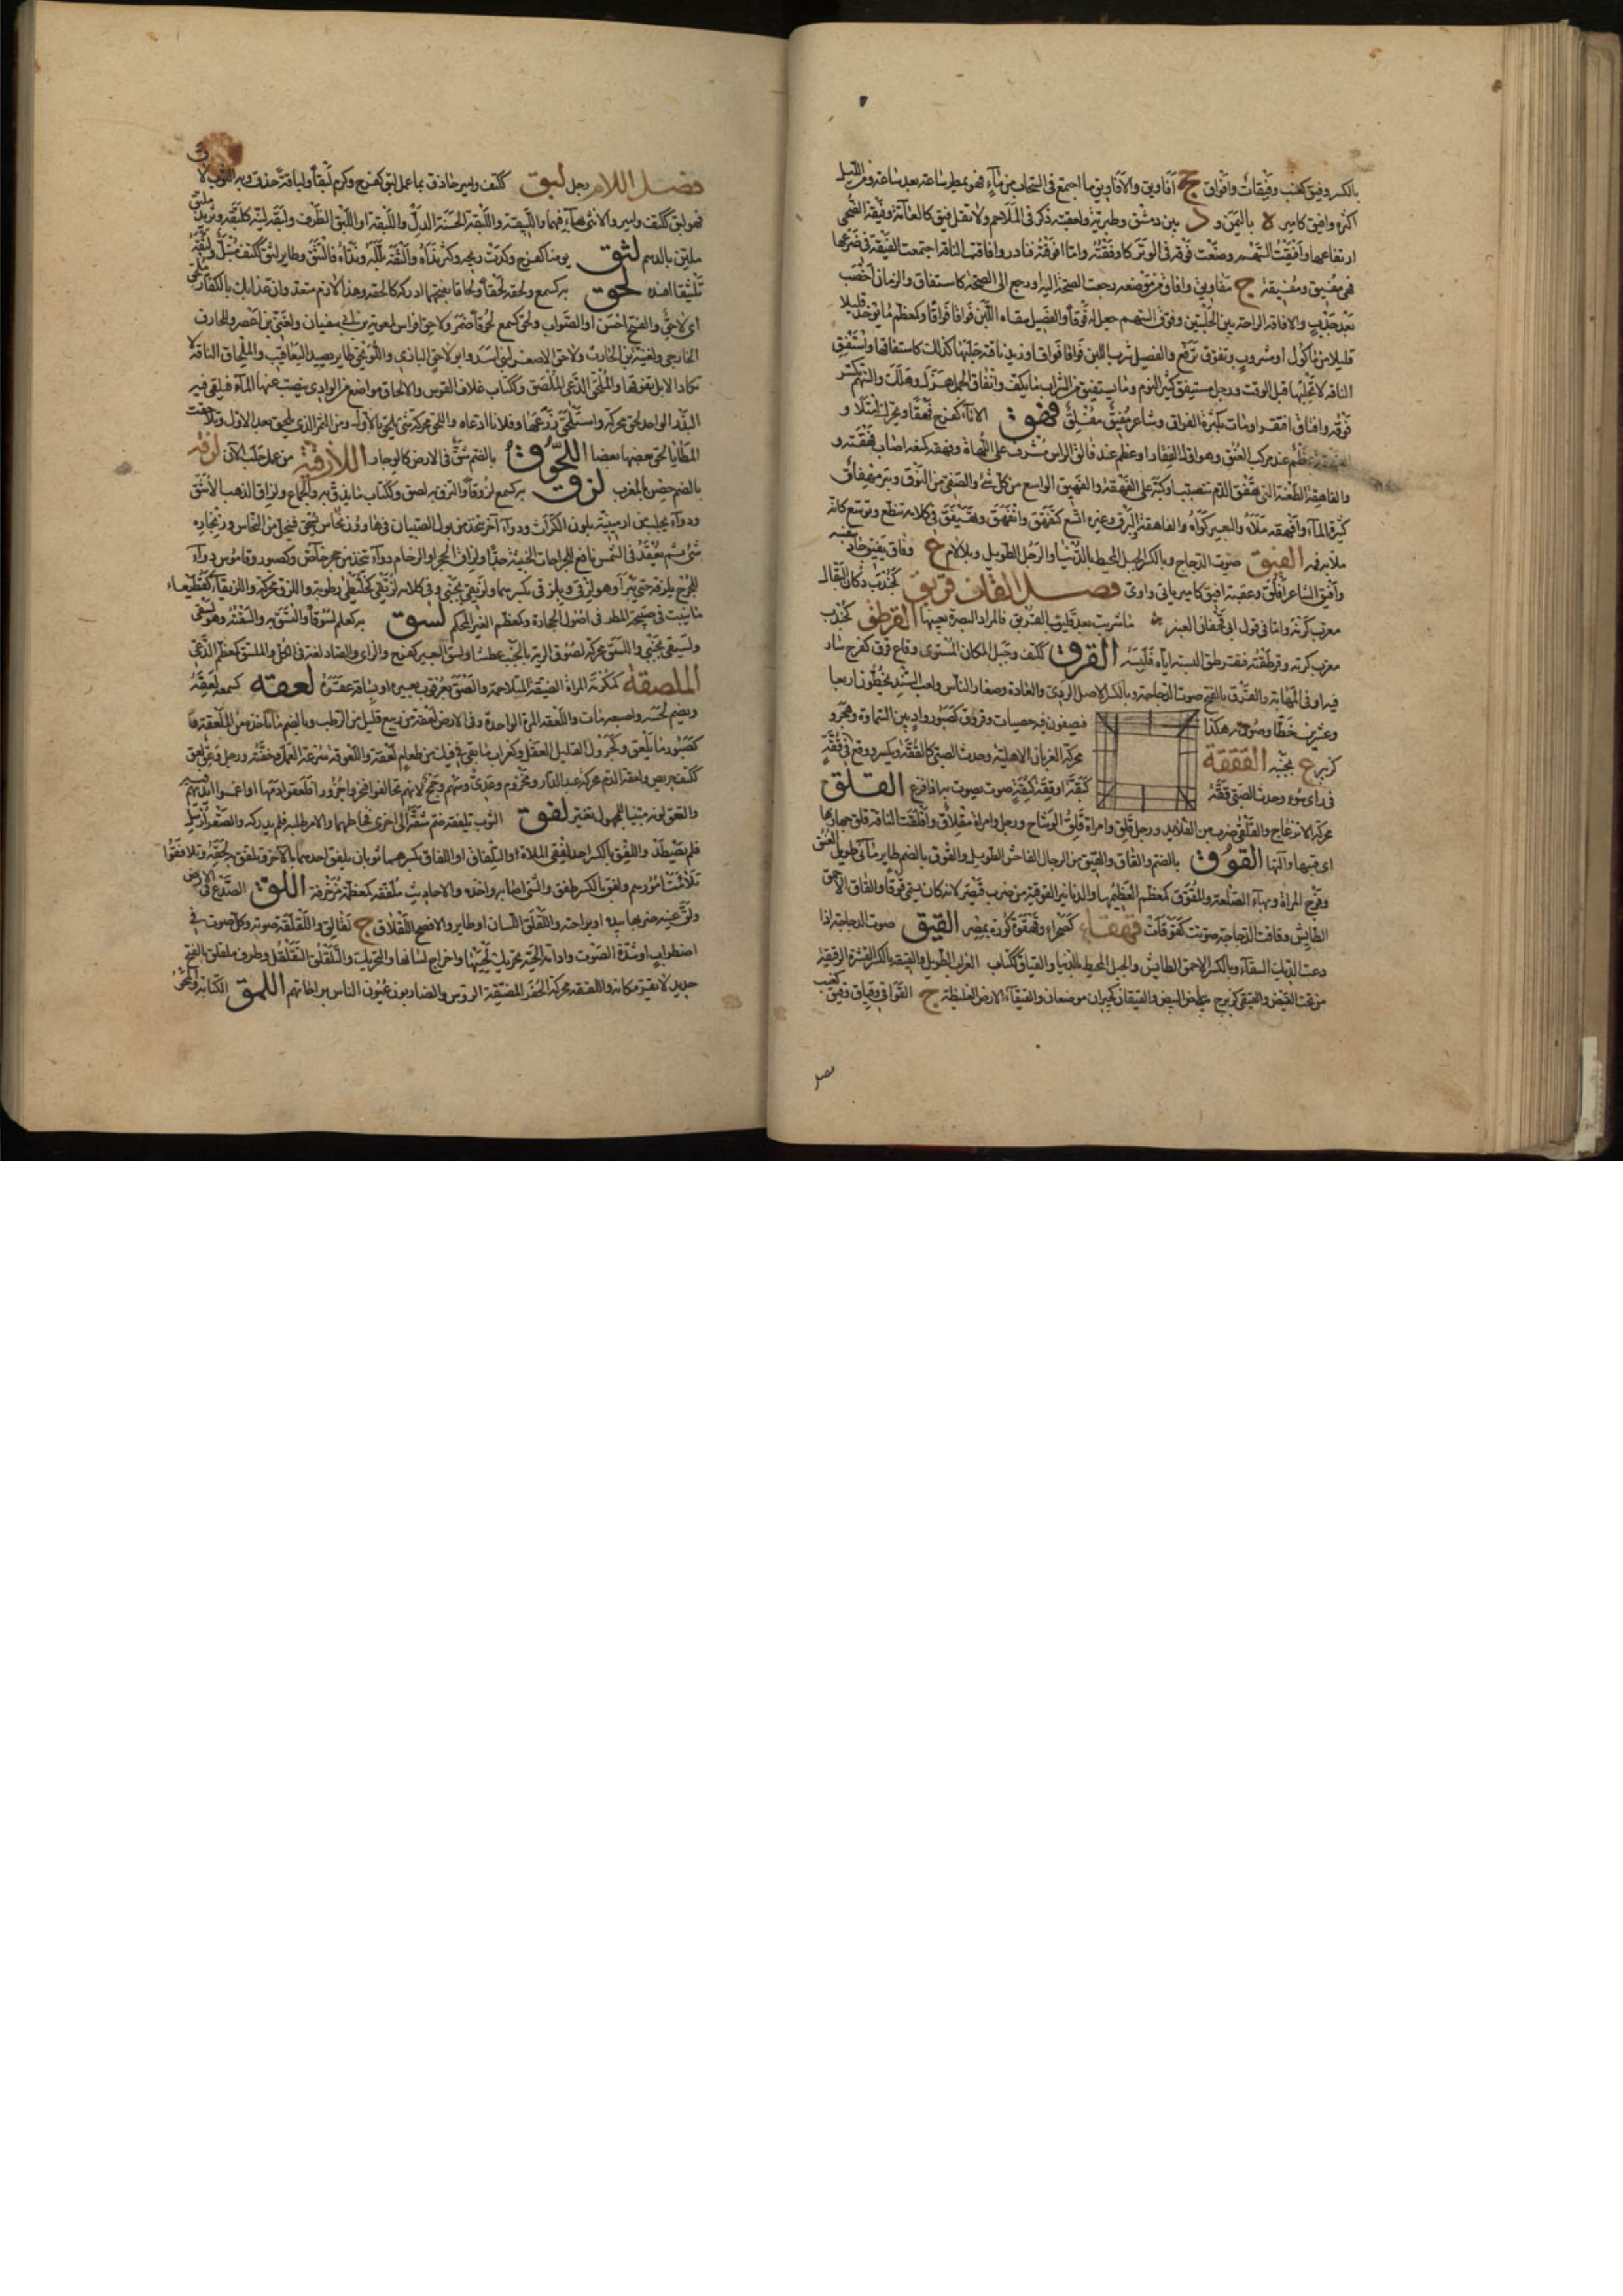 بالكسر وفيق كعنب وفيقات وافواق جج افاويق والافاويق ما اجتمع فى السحاب من ماء فهو يمطر ساعة بعد ساعة ومن الليل
اكثره وافيق كامير ة باليمن و د بين دمشق وطبرية ولعقبته ذكر فى الملاحم ولا تقل فيق كالعامة وفيقة الضحى
ارتفاعها وافقت السهم وضعت فوقه فى الوتر كاوفقته واما افوقته فنادر وافاقت الناقة اجتمعت الفيقة فى ضرعها
فهى مفيق ومفيقة ج مفاويق وافاق من مرضه رجعت الصحة اليه او رجع الى الصحة كاستفاق والزمان اخصب
بعد جدب والافاقة الراحة بين الحلبتين وفوق السهم جعل له فوقا والفصيل سقاه اللبن فواقا فواقا وكمعظم ما يؤخذ قليلا
قليلا من ماكول او مشروب وتفوق ترفع والفصيل شرب اللبن فواقا فواقا وزيد ناقته حلبها كذلك كاستفاقها واستفق
الناقة لا تحلبها قبل الوقت ورجل مستفيق كثير النوم وما يستفيق من الشراب ما يكف وانفاق الجمل هزل وهلك والسهم تكسر
فوقه وافتاق افتقر او مات بكثرة الفواق وشاعر مفيق مفلق فهق الاناء كفرح فهقا ويحرك امتلا و
عظم عند مركب العنق وهو اول الفقار او عظم عند فائق الراس مشرف على اللهاة وفهقه كمنعه اصاب فهقته و
والفاهقة الطعنة التى تفهق الدم تتصبب اوكية على الفهقة والفهيق الواسع من كل شئ والصفى من النوق وبئر مفهاق
كثيرة الماء وافهقه ملاه والبعير كواه والفاهقة البرق وغيره اتسع كتفهق وانفهق وتفيهق فى كلامه تنطع وتوسع كانه
ملا به فمه الفيق صوت الدجاج وبالكسر الجبل المحيط بالدنيا والرجل الطويل وبلا لام ع وفاق يفيق جاد بنفسه
وافيق الشاعر افلق وعقبة افيق كامير ياتى واوى فصل القاف قربق كجندب دكان البقال
معرب كربه واما فى قول ابى قحفان العنبرى ما شربت بعد قليب القربق فالمراد البصرة بعينها القرطق كجندب
معرب كرته وقرطقته فتقرطق البسته اياه فلبسه القرق ككتف وجبل المكان المستوى وقاع قرق كفرح سار
فيه او فى المهابة والقرق بالفتح صوت الدجاجة وبالكسر الاصل الردئ والعادة وصغار الناس ولعب السدر يخطون اربعا
وعشرين خطا وصورته هكذا فيصفون فيه حصيات وقروق كصبور واد بين السماوة وهجر و
كزبير ع بجنبه القققة محركة الغربان الاهلية وحدث الصبى كالققة ويكسر ووقع فى ققة
فى راى سوء وحدث الصبى ققة كبقة او ققة كثقة صوت يصوت به اذا فزع القلق
محركة الانزعاج والقلقى ضرب من القلائد ورجل قلق وامراة قلق الوشاح ورجل وامراة مقلاق واقلقت الناقة قلق جهازها
اى قتبها والتها القوق بالضم والقاق والقيق من الرجال الفاحش الطويل والقوق بالضم طاير مائى طويل العنق
وفرج المراة وبهاء الصلعة والمقوق كمعظم العظيمها والدنانير القوقية من ضرب قيصر لانه كان يسمى قوقا والقاق الاحمق
الطايش وقاقت الدجاجة صوتت كقوقات قهقاء كصحراء وقهقوة كورة بمصر القيق صوت الدجاجة اذا
دعت الديك السقاء وبالكسر الاحمق الطايش والجبل المحيط بالدنيا والقياق ككتاب الغراب الطويل والقيقة بالكسر القشرة الرقيقة
من تحت القيض والقيقى كزبرج بياض البيض والقيقان كجيران موضعان والقيقاءة الارض الغليظة ج القواقى وقياق وقيق كعنب
فصل اللام رجل لبق ككتف وامير حاذق بما عمل لبق كفرح وكرم لبقا ولباقة حذق وبه الثوب لاق
فهو لبق ككتف وامير والانثى بهاء فيهما واللبيقة واللبقة الحسنة الدل واللبقة او اللبق الظرف ولبقه لينه كلبقه وثريد ملبق
ملين بالدسم لثق يومنا كفرح ركدت ريحه وكثر نداه والثقه بلله ونداه فالتثق وطاير لثق ككتف مبتل ولثقه
تلثيقا افسده لحق به كسمع ولحقه لحقا ولحاقا بفتحهما ادركه كالحقه وهذا لازم متعد وان عذابك بالكفار ملحق
اى لاحق والفتح احسن او الصواب ولحق كسمع لحوقا ضمر ولاحق افراس لمعوية بن ابى سفيان ولغنى بن اعصر وللحازوق
الخارجى ولعيينة بن الحارث ولاحق الاصغر لبنى اسد وابو لاحق البازى واللويحق طاير يصيد اليعاقيب والملحاق الناقة لا
تكاد الابل تفوقها والملحق الدعى الملصق وككتاب غلاف القوس والالحاق مواضع من الوادى ينضب عنها الماء فيلقى فيه
البذر الواحد لحق محركة واستلحق زرعها وفلانا ادعاه واللحق محركة شئ يلحق بالاول ومن الثمر الذى يلحق بعد الاول وتلاحقت
المطايا لحق بعضها بعضا اللخقوق بالضم شق فى الارض كالوجار اللاذقية من عمل حلب الان لزقة
بالضم حصن بالمغرب لزق به كسمع لزوقا والتزق به لصق وككتاب ما يلزق به والجماع ولزاق الذهب الاشق
ودواء يجلب من ارمينية بلون الكراث ودواء اخر يتخذ من بول الصبيان فى هاون نحاس يسحق فينحل من النحاس وزنجاره
شئ ثم يعقد فى الشمس نافع للجراحات الخبيثة جدا ولزاق الحجر او الرخام دواء يتخذ من حجر خاص وكصبور وقاموس دواء
للجرح يلزقه حتى يبرا وهو لزقى وبلزقى بكسرهما ولزيقى بجنبى وفى كلامه لزيقى كخليطى رطوبة واللزق محركة واللزيقاء كقطيعاء
ما ينبت فى صبيحة المطر فى اصول الحجارة وكمعظم الغير المحكم لسق به كعلم لسوقا والتسق به والسقته وهو لسقى
ولسيقى بجنبى واللسق محركة لصوق الرية بالجنب عطشا ولسق البعير كفرح والزاى والصاد لغة فى الكل والملسق كمعظم الدعى
الملصقة كمكرمة المراة الضيقة المتلاحمة والصق بعرقوب بعيره او بساقه عقره لعقه كسمعه لعقة
ويضم لحسه واصبعه مات واللعقة المرة الواحدة وفى الارض لعقة من ربيع قليل من الرطب وبالضم ما تاخذه من الملعقة
كصبور ما يلعق وكجرول القليل العقل وكغراب ما بقى فى فيك من طعام لعقته واللعوقة سرعة العمل وخفته ورجل وعق لعق
ككتف حريص ولعقة الدم محركة عبد الدار ومخزوم وعدى وسهم وجمح لانهم تحالفوا فنحروا جزورا فلعقوا دمها او اغمسوا ايديهم فيه
والتعق لونه مبنيا للمجهول تغير لفق الثوب يلفقه ضم شقة الى اخرى فخاطهما والامر طلبه فلم يدركه والصقر ارسل
فلم يصطد واللفق بالكسر احد لفقى الملاءة او اللفاق او اللفاق بكسرهما ثوبان يلفق احدهما بالاخر وتلفق به لحقه وتلافقوا
تلاءمت امورهم ولفق بالكسر طفق والشئ اصابه واخذه والاحاديث ملفقة كمعظمة مزخرفة اللق الصدع فى الارض
ولق عينه ضربها بيده او براحته واللقلق اللسان او طاير والافصح اللقلاق ج لقالق واللقلقة صوته وكل صوت فى
اضطراب او شدة الصوت وادامة الحية تحريك لحييها واخراج لسانها والتحريك والتلقلق التقلقل وطرف ملقلق بالفتح
حديد لا يقر مكانه واللققة محركة الحفر المضيقة الروس والضاربون عيون الناس براحاتهم اللمق الكتابة والمحو